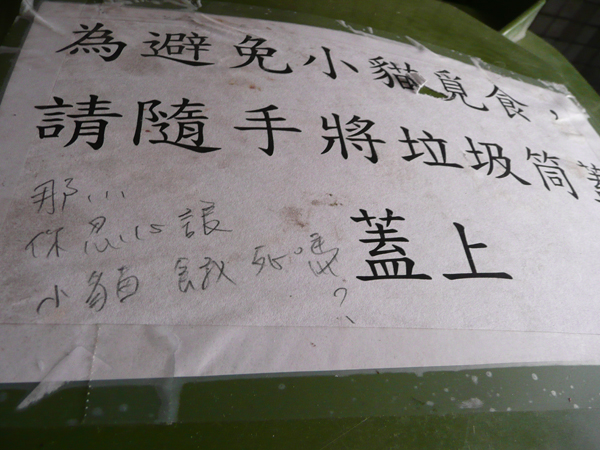 為避免小貓覓食，
請隨手將垃圾筒蓋
蓋上
那...
你忍心讓
小貓餓死嗎?